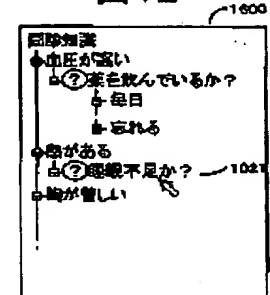 1600
問診知識
血圧が高い
?薬を飲んでいるか?
毎日
忘れる
?睡眠不足か?
1021
胸が苦しい